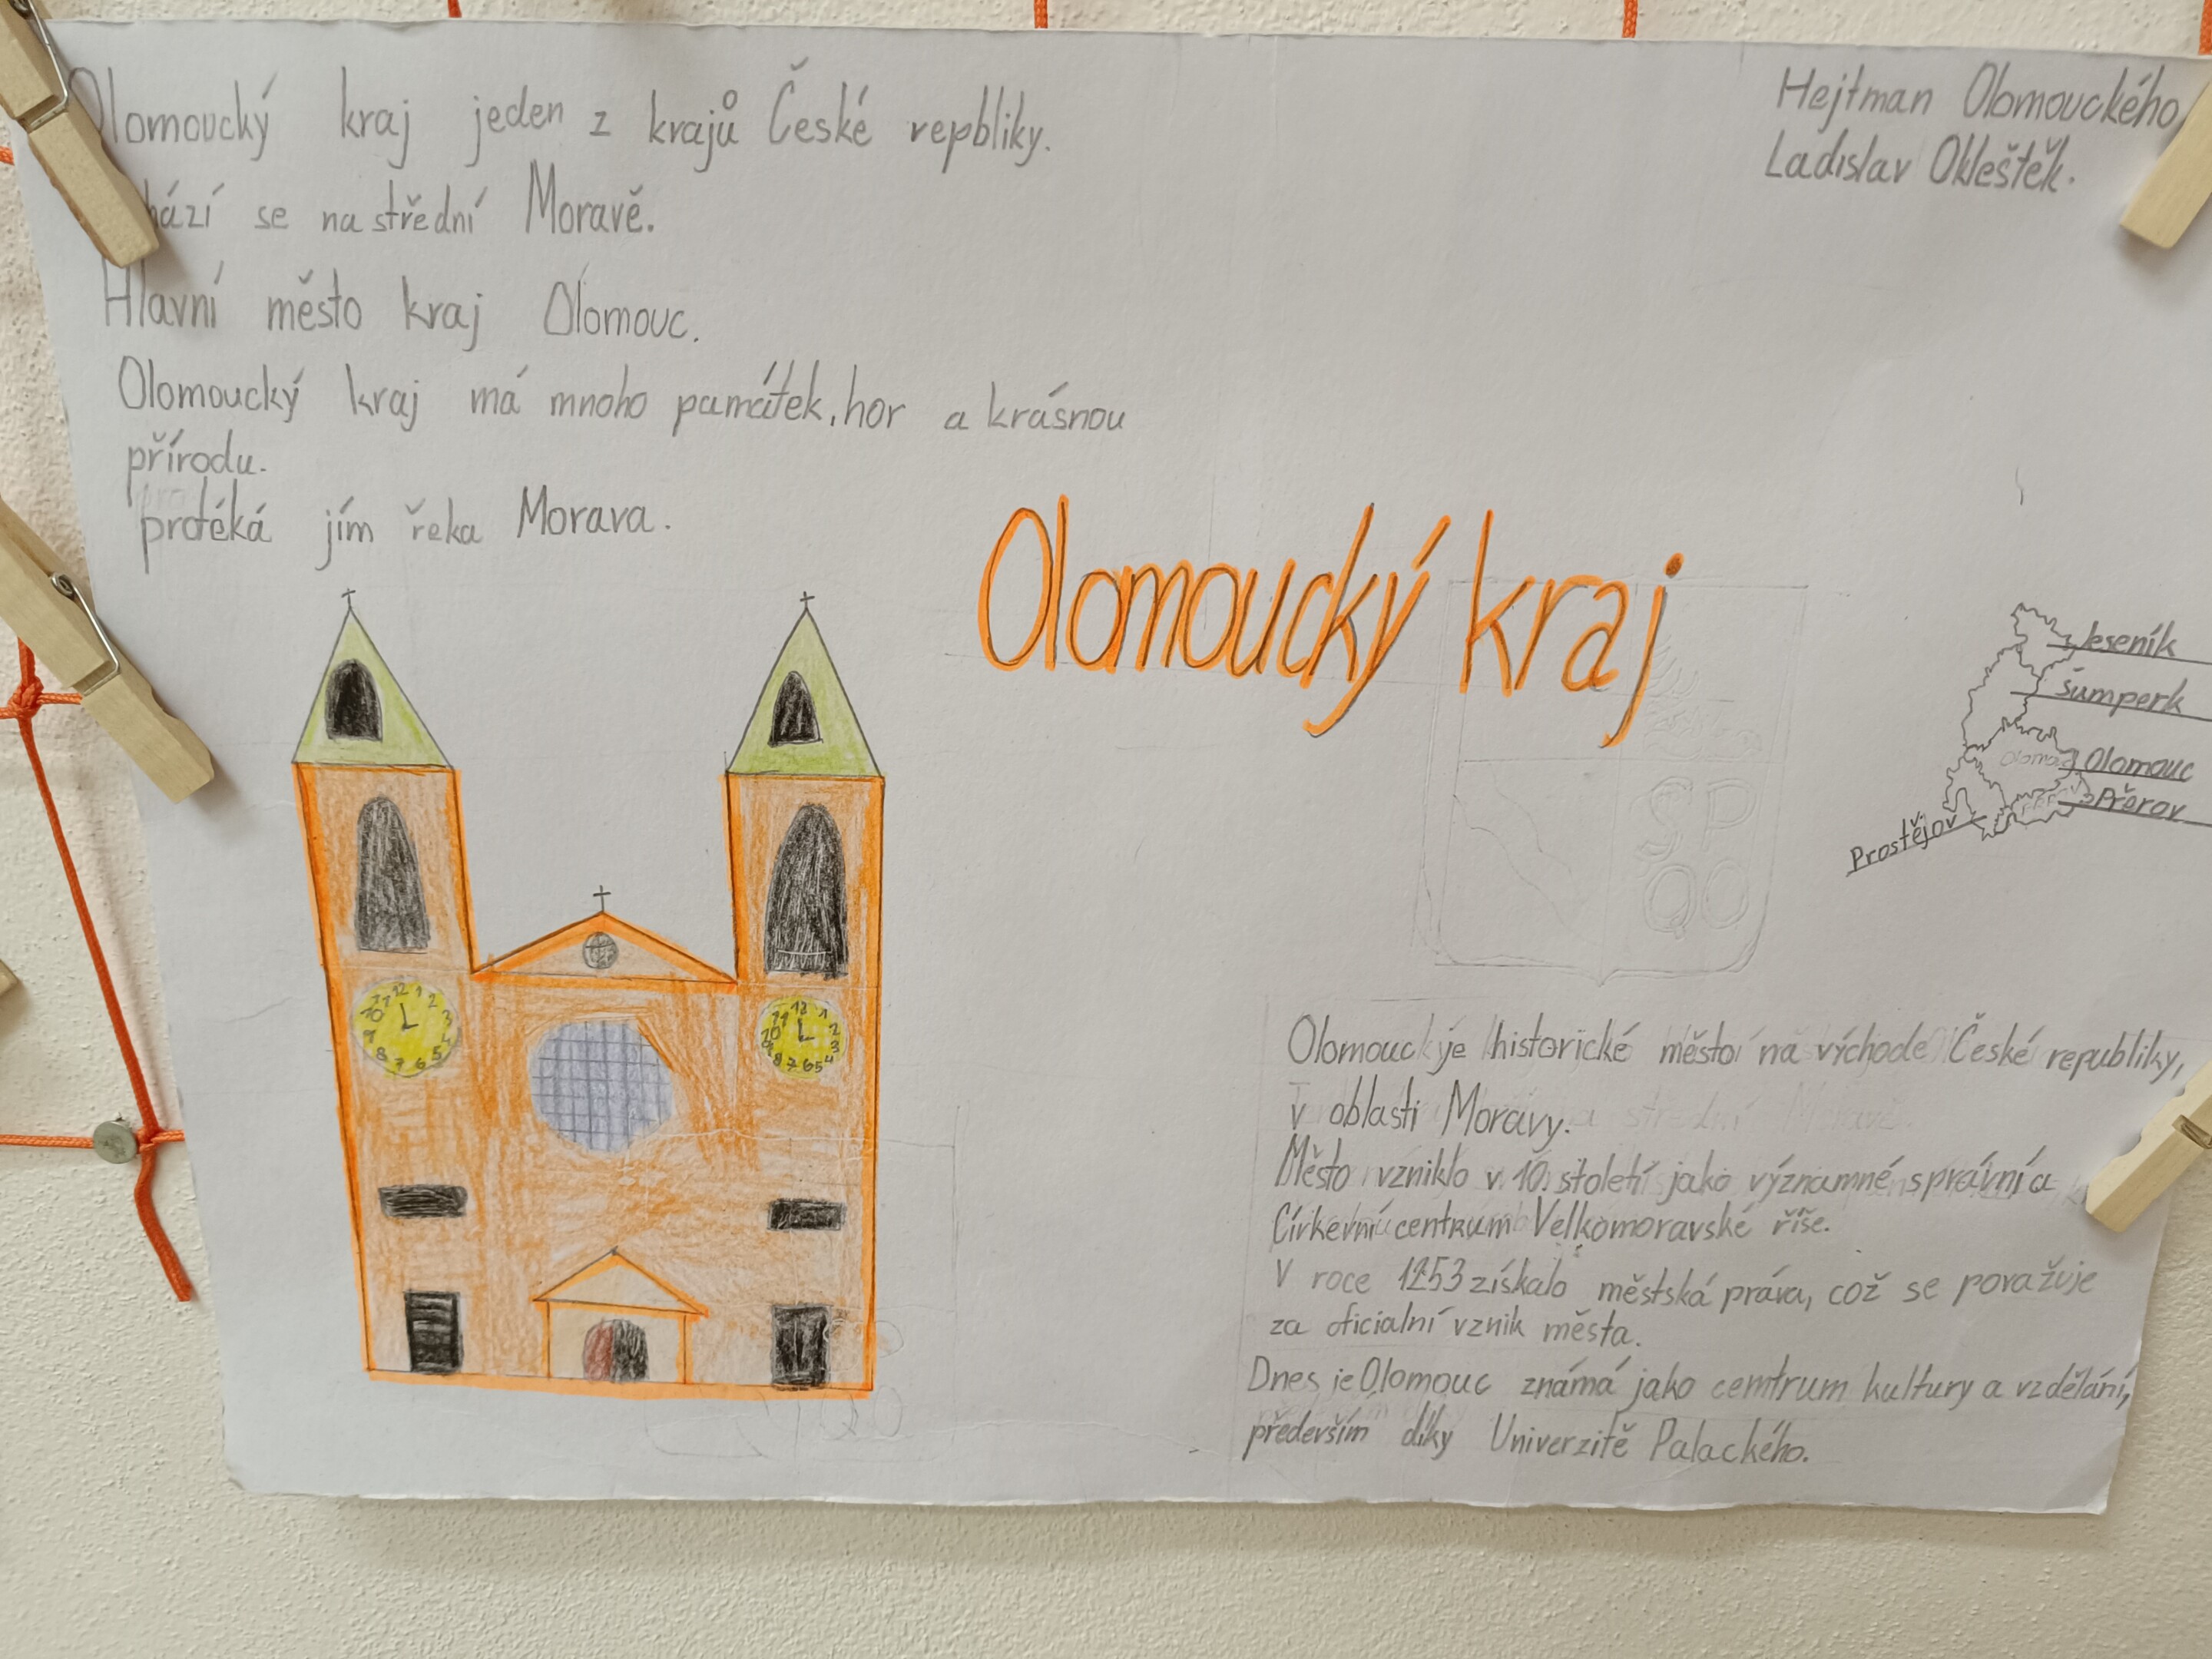 Olomoucký kraj jeden z krajů České repbliky.
hází se na střední Moravě.
Hlavní město kraj Olomouc.
Olomoucký kraj má mnoho památek, hor a krásnou
přírodu.
protéká jím řeka Morava.
Hejtman Olomouckého
Ladislav Okleštěk.
Olomoucký kraj
Jeseník
šumperk
Olomouc
Přerov
Prostějov
SP
QO
12 1 2 3 4 5 6 7 8 9 10 11
12 1 2 3 4 5 6 7 8 9 10 11
Olomouc je historické město na východe České republiky,
v oblasti Moravy.
Město vzniklo v 10. století jako významné správní a
Církevní centrum Velkomoravské říše.
V roce 1253 získalo městská práva, což se považuje
za oficialní vznik města.
Dnes je Olomouc známá jako cemtrum kultury a vzdělání,
především díky Univerzitě Palackého.